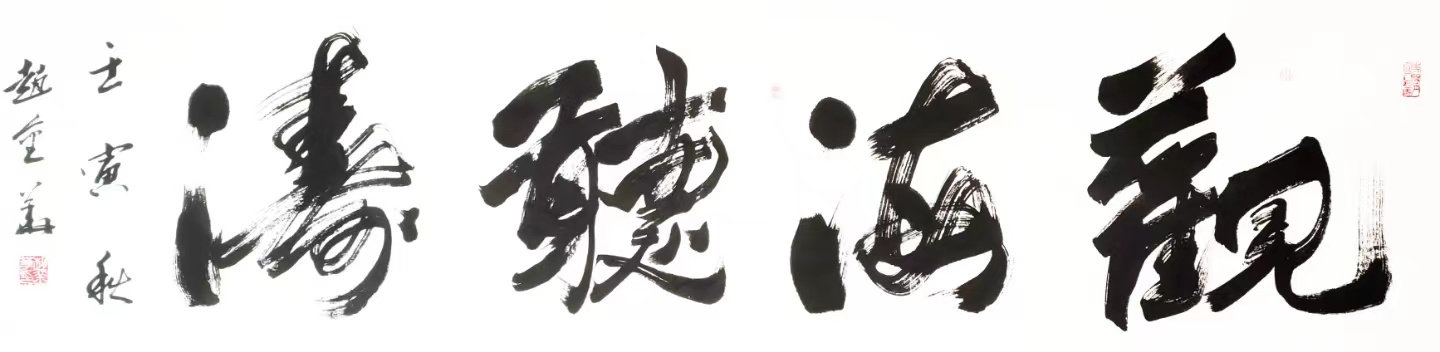 觀海聽濤
壬寅秋
趙金